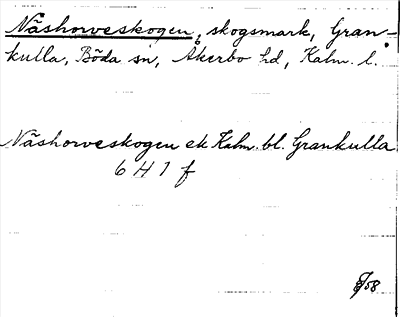 Näshorveskogen, skogsmark, Gran-
kulla, Böda sn, Åkerbo hd, Kalm. l.
Näshorveskogen ek Kalm. bl. Grankulla
6 H 1 f